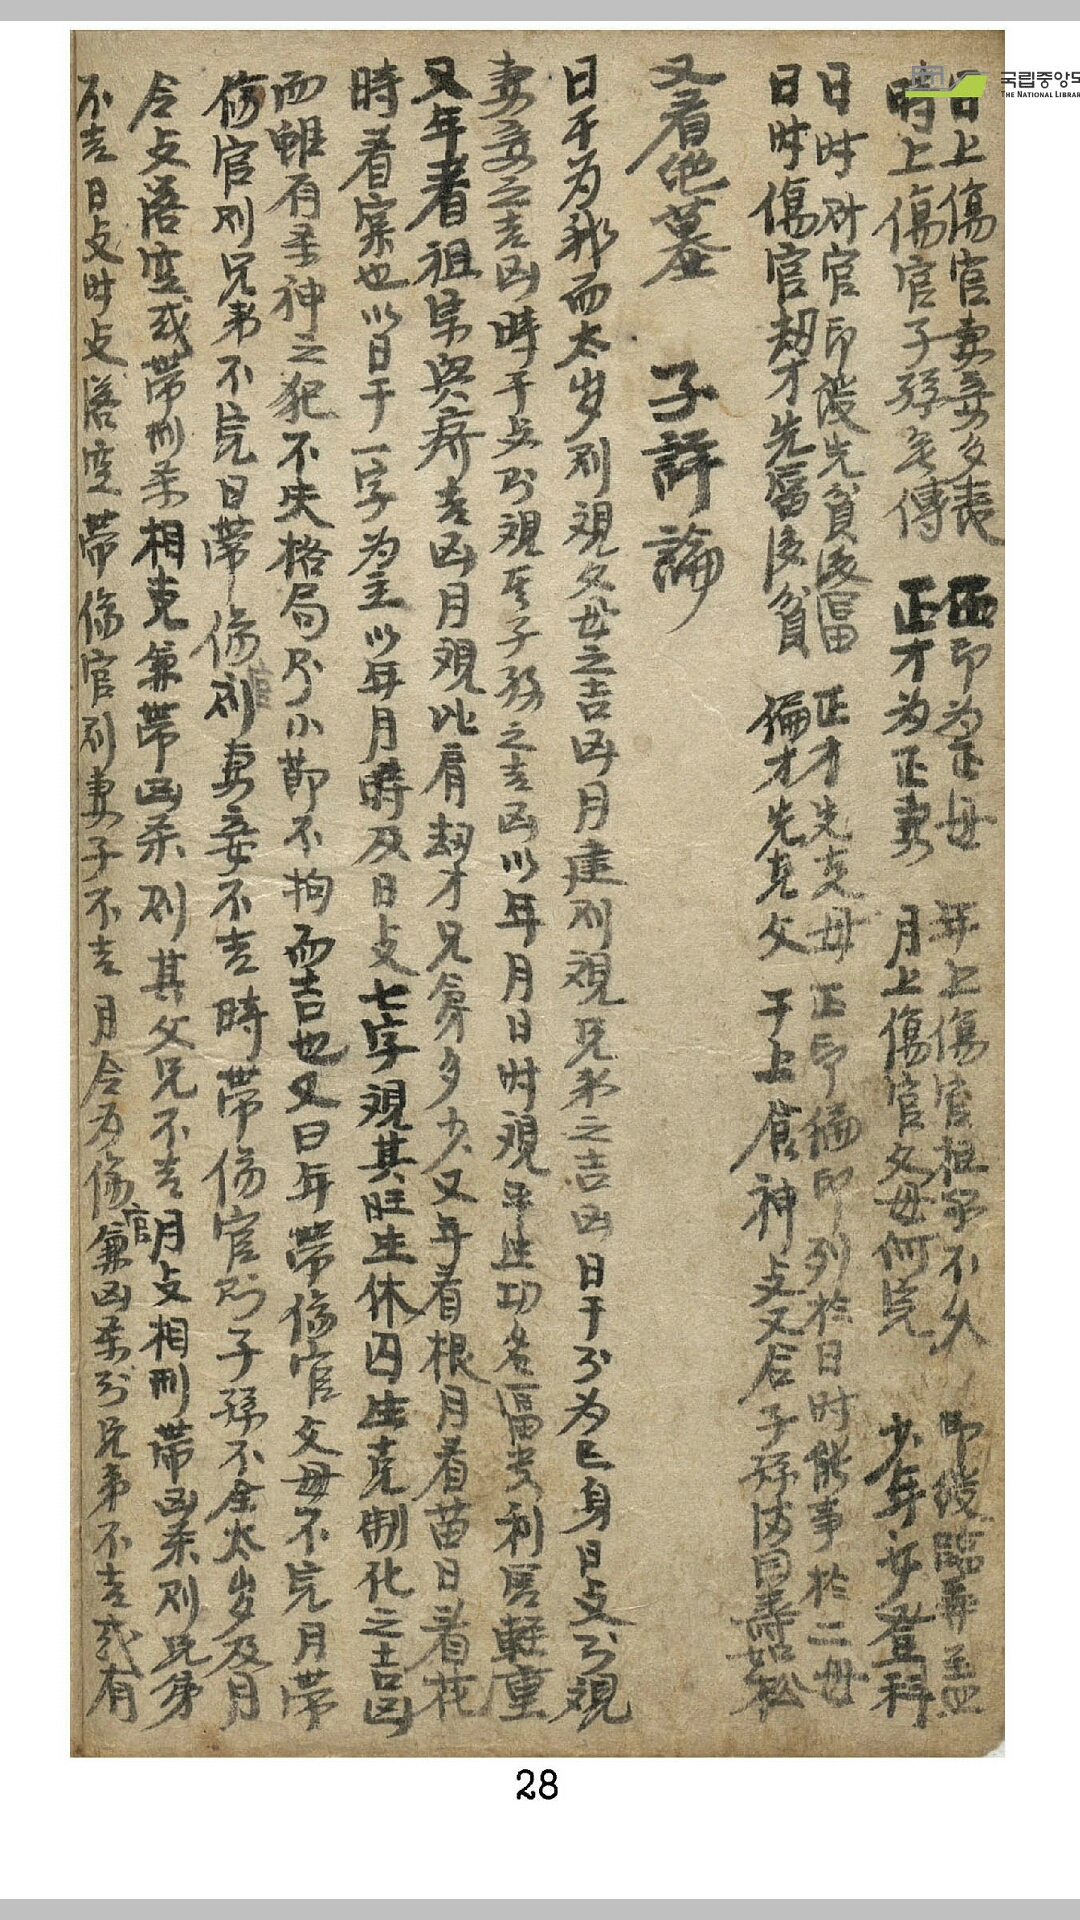 日上傷官妻妾多丧 正印为正母 年上傷官祖宗不久 印綬臨
時上傷官子孫無傳 正才为正妻 月上傷官父母何完 少年登科
日时財官印綬先貧後冨 正才先克母 正印偏印列於日时能事於二母
日时傷官劫才先冨後貧 偏才先克父 干上食神支又合子孫
又看绝墓 子評論
日干为我而太岁則視父母之吉凶月建則視兄弟之吉凶日干乃为己身日支乃視
妻妾之吉凶時干支乃視其子孫之吉凶以年月日时視平生功名冨贵利害輕重
又年看祖宗與 吉凶月視比肩劫才兄弟多少又年看根月看苗日看花
時看宲也以日干一字为主以年月時及日支七字視其旺生休囚生克制化之吉凶
而虽有杀神之犯不失格局乃小節不拘而吉也又曰年帶傷官父母不完月帶
傷官則兄弟不完日帶傷官則妻妾不吉時帶傷官則子孫不全太岁及月
令支落空或帶刑杀相克兼帶凶杀則其父兄不吉月支相刑帶凶杀則兄弟
不吉日支时支落空帶傷官則妻子不吉月令为傷官兼凶杀則兄弟不吉或有
국립중앙도
THE NATIONAL LIBRAR
28